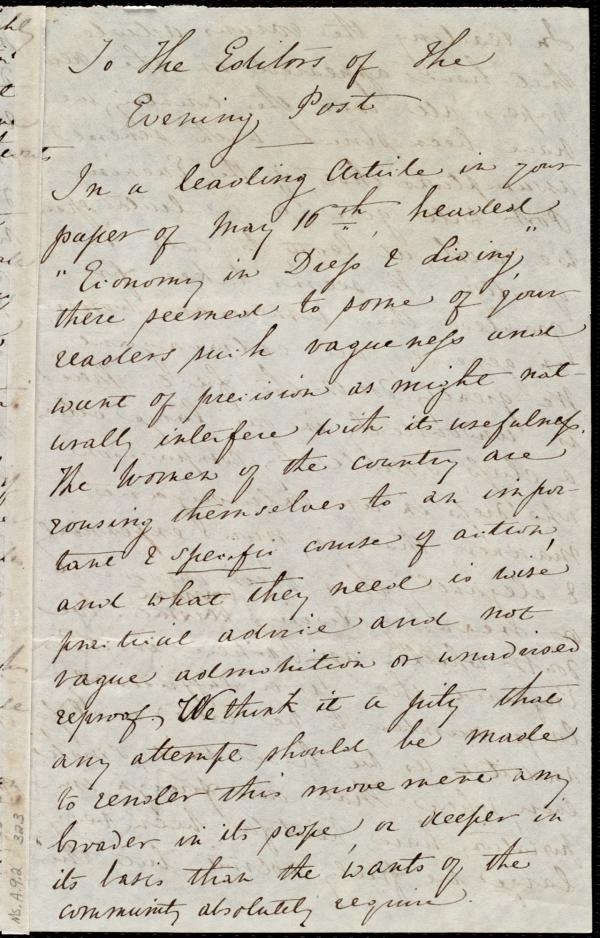 To The Editors of The
Evening Post
In a leading Article in your
paper of May 16th, headed
"Economy in Dress & Living,"
there seemed to some of your
readers such vagueness and
want of precision as might nat-
urally interfere with its usefulness.
The Women of the country are
rousing themselves to an impor-
tant & specific course of action,
and what they need is wise
practical advice and not
vague admonition or unadvised
reproof. We think it a pity that
any attempt should be made
to render this movement any
broader in its scope, or deeper in
its basis than the wants of the
community absolutely require.
Ms. A.9.2 323